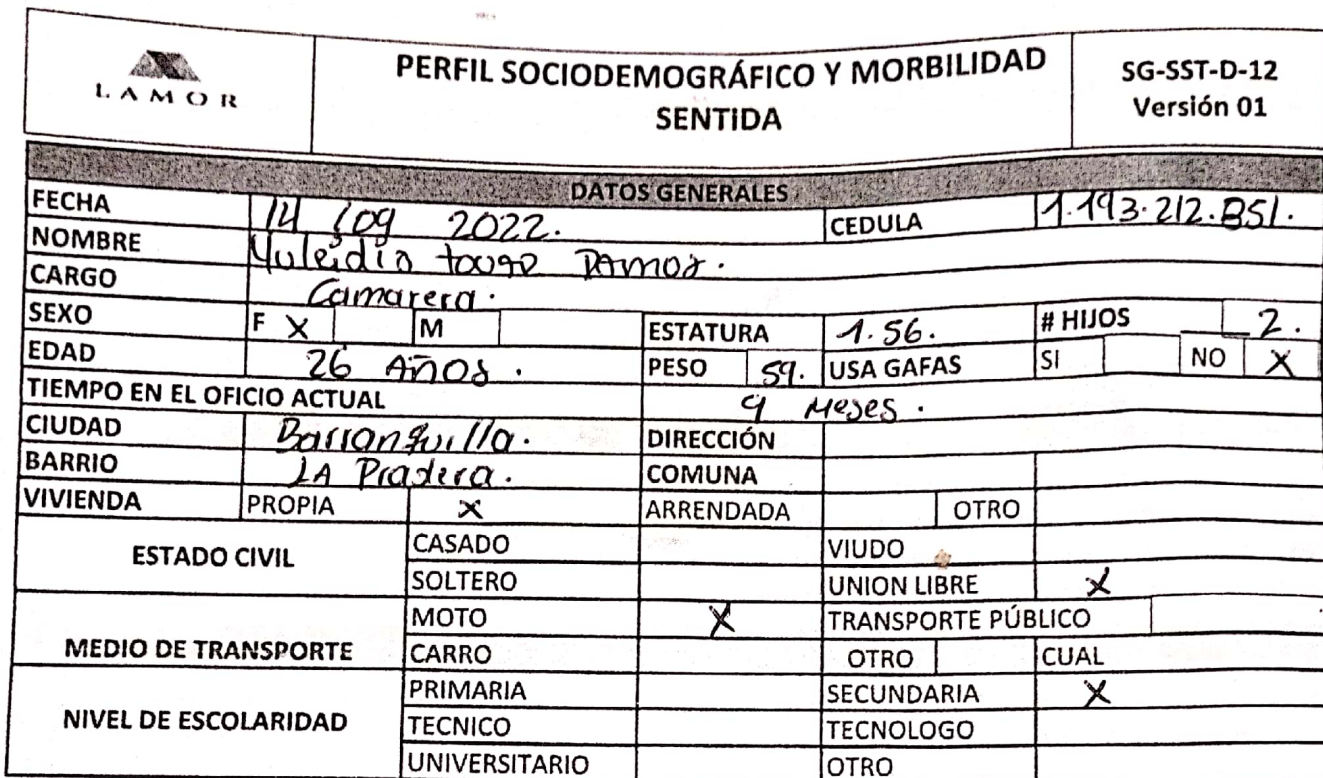 LAMOR
PERFIL SOCIODEMOGRÁFICO Y MORBILIDAD
SENTIDA
SG-SST-D-12
Versión 01
DATOS GENERALES
FECHA 14 09 2022. CEDULA 1.193.212.851.
NOMBRE Yuleidis
CARGO Camarera.
SEXO F X M ESTATURA 1.56. # HIJOS 2.
EDAD 26 AÑOS. PESO 59. USA GAFAS SI NO X
TIEMPO EN EL OFICIO ACTUAL 9 Meses.
CIUDAD Barranquilla. DIRECCIÓN
BARRIO LA Pradera. COMUNA
VIVIENDA PROPIA X ARRENDADA OTRO
ESTADO CIVIL CASADO VIUDO
SOLTERO UNION LIBRE X
MEDIO DE TRANSPORTE MOTO X TRANSPORTE PÚBLICO
CARRO OTRO CUAL
NIVEL DE ESCOLARIDAD PRIMARIA SECUNDARIA X
TECNICO TECNOLOGO
UNIVERSITARIO OTRO